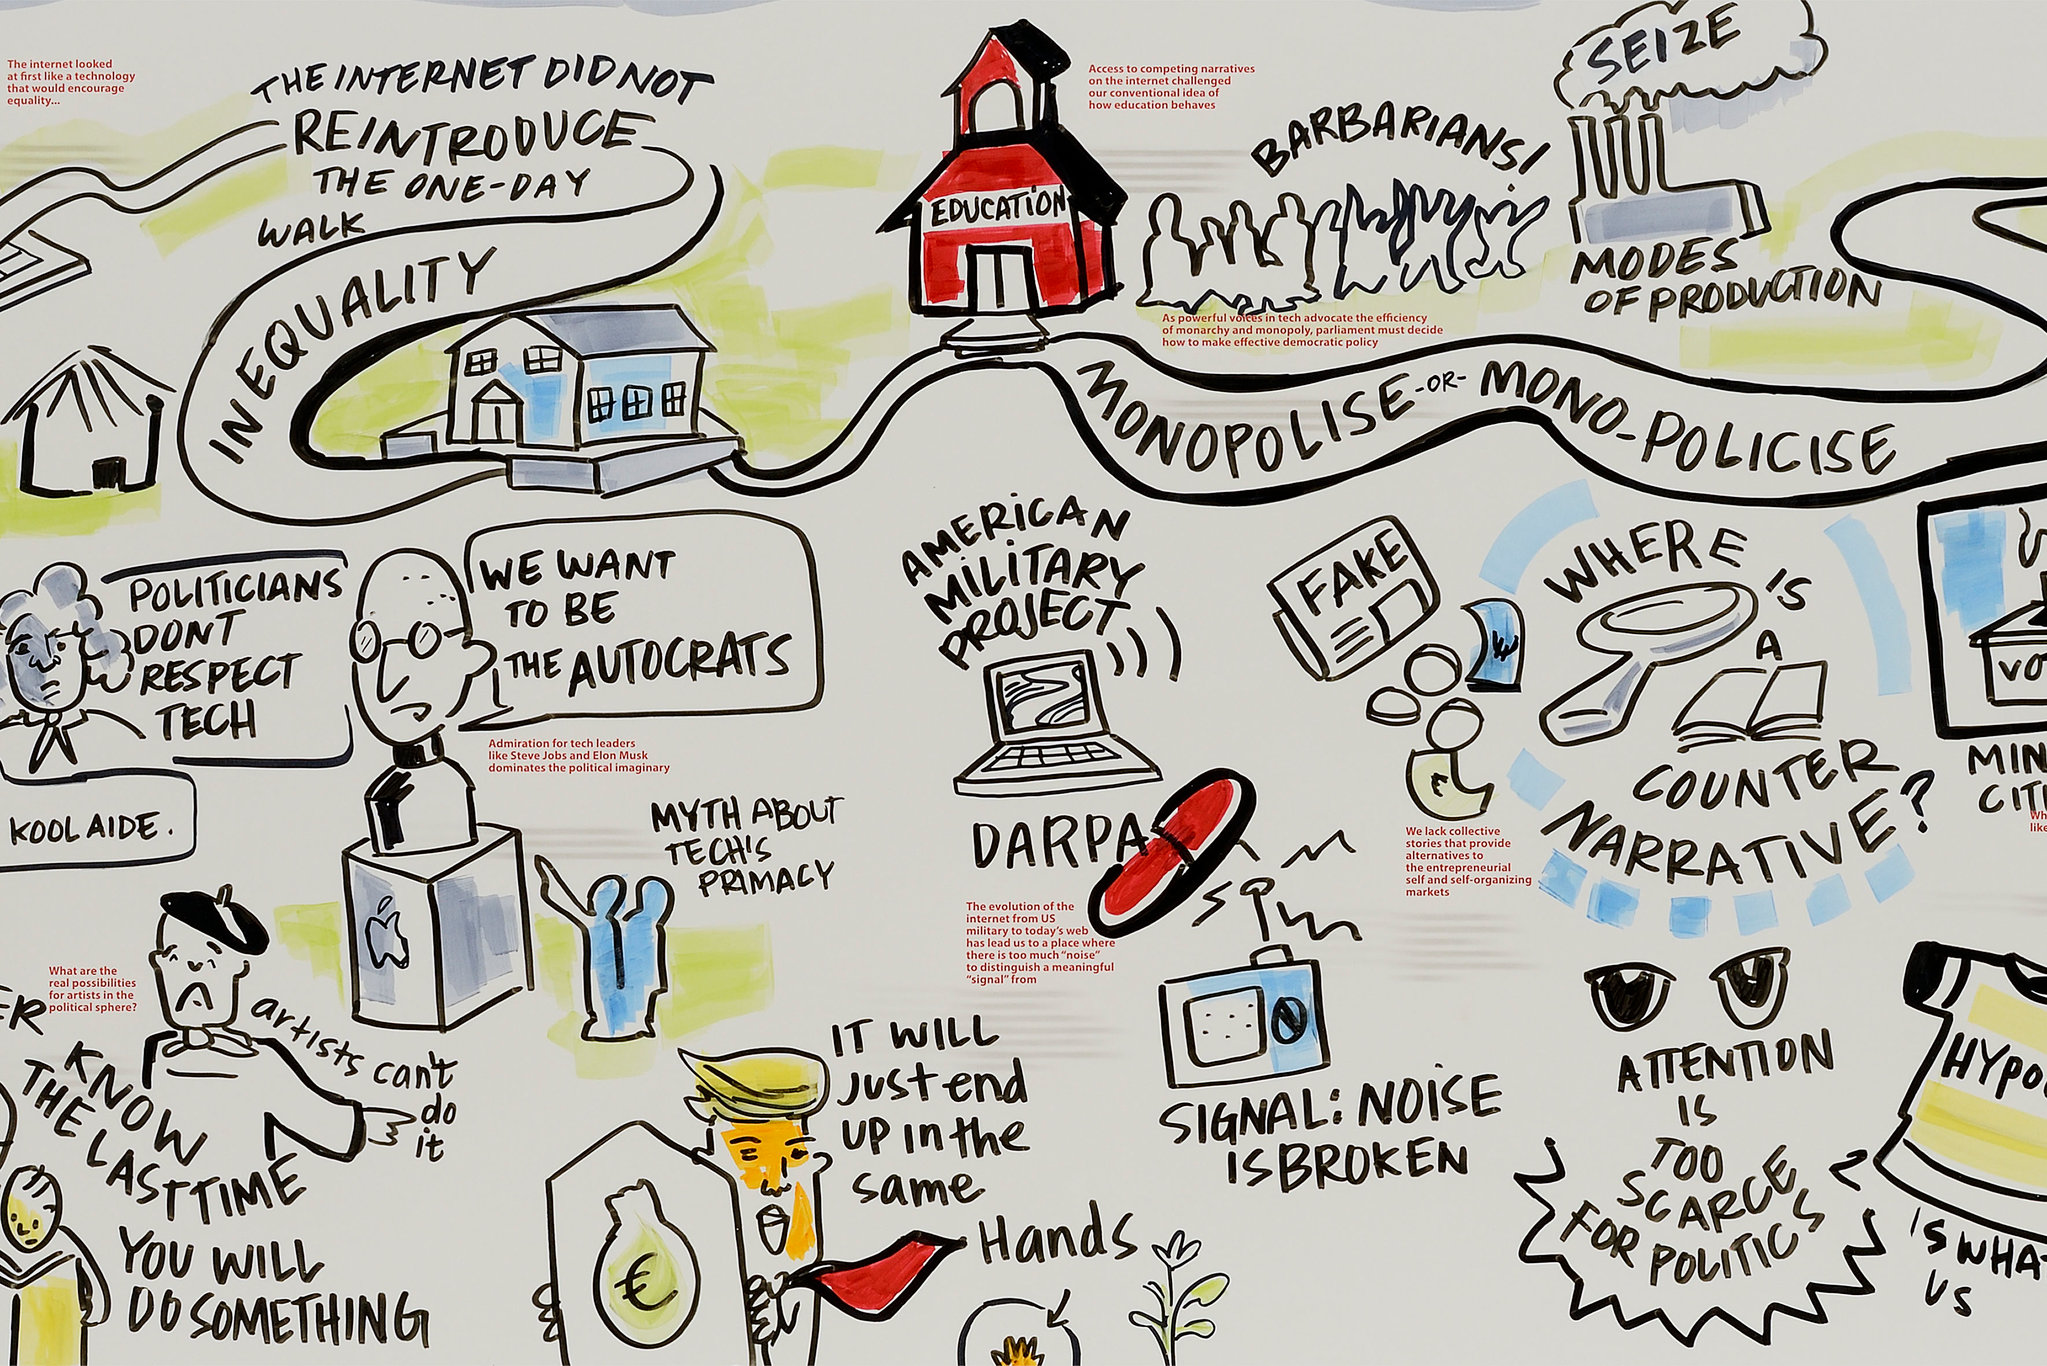 The internet looked
at first like a technology
that would encourage
equality...
THE INTERNET DID NOT
REINTRODUCE
THE ONE-DAY
WALK
INEQUALITY
EDUCATION
Access to competing narratives
on the internet challenged
our conventional idea of
how education behaves
BARBARIANS!
SEIZE
MODES
OF PRODUCTION
As powerful voices in tech advocate the efficiency
of monarchy and monopoly, parliament must decide
how to make effective democratic policy
MONOPOLISE -OR- MONO-POLICISE
POLITICIANS
DONT
RESPECT
TECH
WE WANT
TO BE
THE AUTOCRATS
Admiration for tech leaders
like Steve Jobs and Elon Musk
dominates the political imaginary
KOOLAIDE.
MYTH ABOUT
TECH'S
PRIMACY
AMERICAN
MILITARY
PROJECT
DARPA
The evolution of the
internet from US
military to today's web
has lead us to a place where
there is too much "noise"
to distinguish a meaningful
"signal" from
FAKE
€
WHERE
IS
A
COUNTER
NARRATIVE?
We lack collective
stories that provide
alternatives to
the entrepreneurial
self and self-organizing
markets
VO
MIN
CITI
Wh
like
What are the
real possibilities
for artists in the
political sphere?
ER
KNOW
THE LAST TIME
YOU WILL
DO SOMETHING
artists can't
do
it
€
IT WILL
Just end
UP in the
same
Hands
SIGNAL: NOISE
IS BROKEN
ATTENTION
IS
TOO
SCARCE
FOR POLITICS
HYPO
IS WHA
US